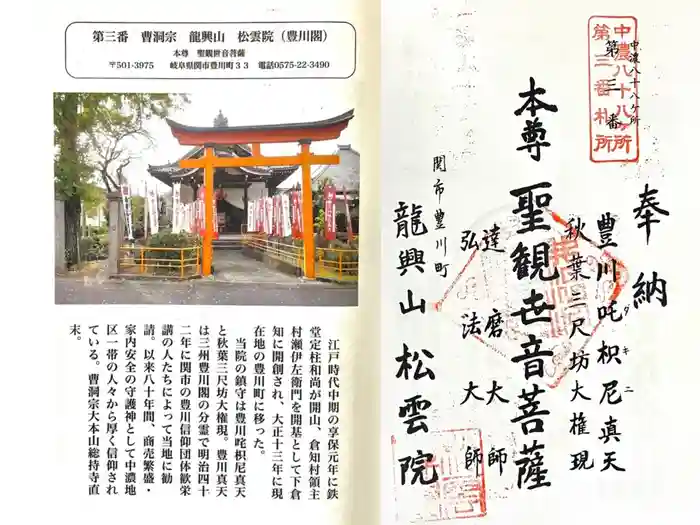 第三番　曹洞宗　龍興山　松雲院（豊川閣）
本尊　聖観世音菩薩
〒501-3975　岐阜県関市豊川町３３　電話0575-22-3490
江戸時代中期の享保元年に鉄
堂定柱和尚が開山、倉知村領主
村瀬伊左衛門を開基として下倉
知に開創され、大正十三年に現
在地の豊川町に移った。
当院の鎮守は豊川咤枳尼真天
と秋葉三尺坊大権現。豊川真天
は三州豊川閣の分霊で明治四十
二年に関市の豊川信仰団体歓栄
講の人たちによって当地に勧
請。以来八十年間、商売繁盛・
家内安全の守護神として中濃地
区一帯の人々から厚く信仰され
ている。曹洞宗大本山総持寺直
末。
中濃八十八ヶ所
第三番
中濃八十八ヶ所
第三番札所
奉納
豊川吒枳尼真天
ダキニ
秋葉三尺坊大権現
本尊 聖観世音菩薩
達磨大師
弘法大師
関市豊川町
龍興山 松雲院